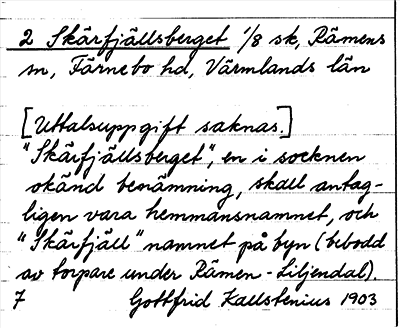 2 Skärfjällsberget 1/8 sk, Rämens
sn, Färnebo hd, Värmlands län
[Uttalsuppgift saknas.]
"Skärfjällsberget", en i socknen
okänd benämning, skall antag-
ligen vara hemmansnamnet, och
"Skärfjäll" namnet på byn (bebodd
av torpare under Rämen-Liljendal).
7 Gottfrid Kallstenius 1903